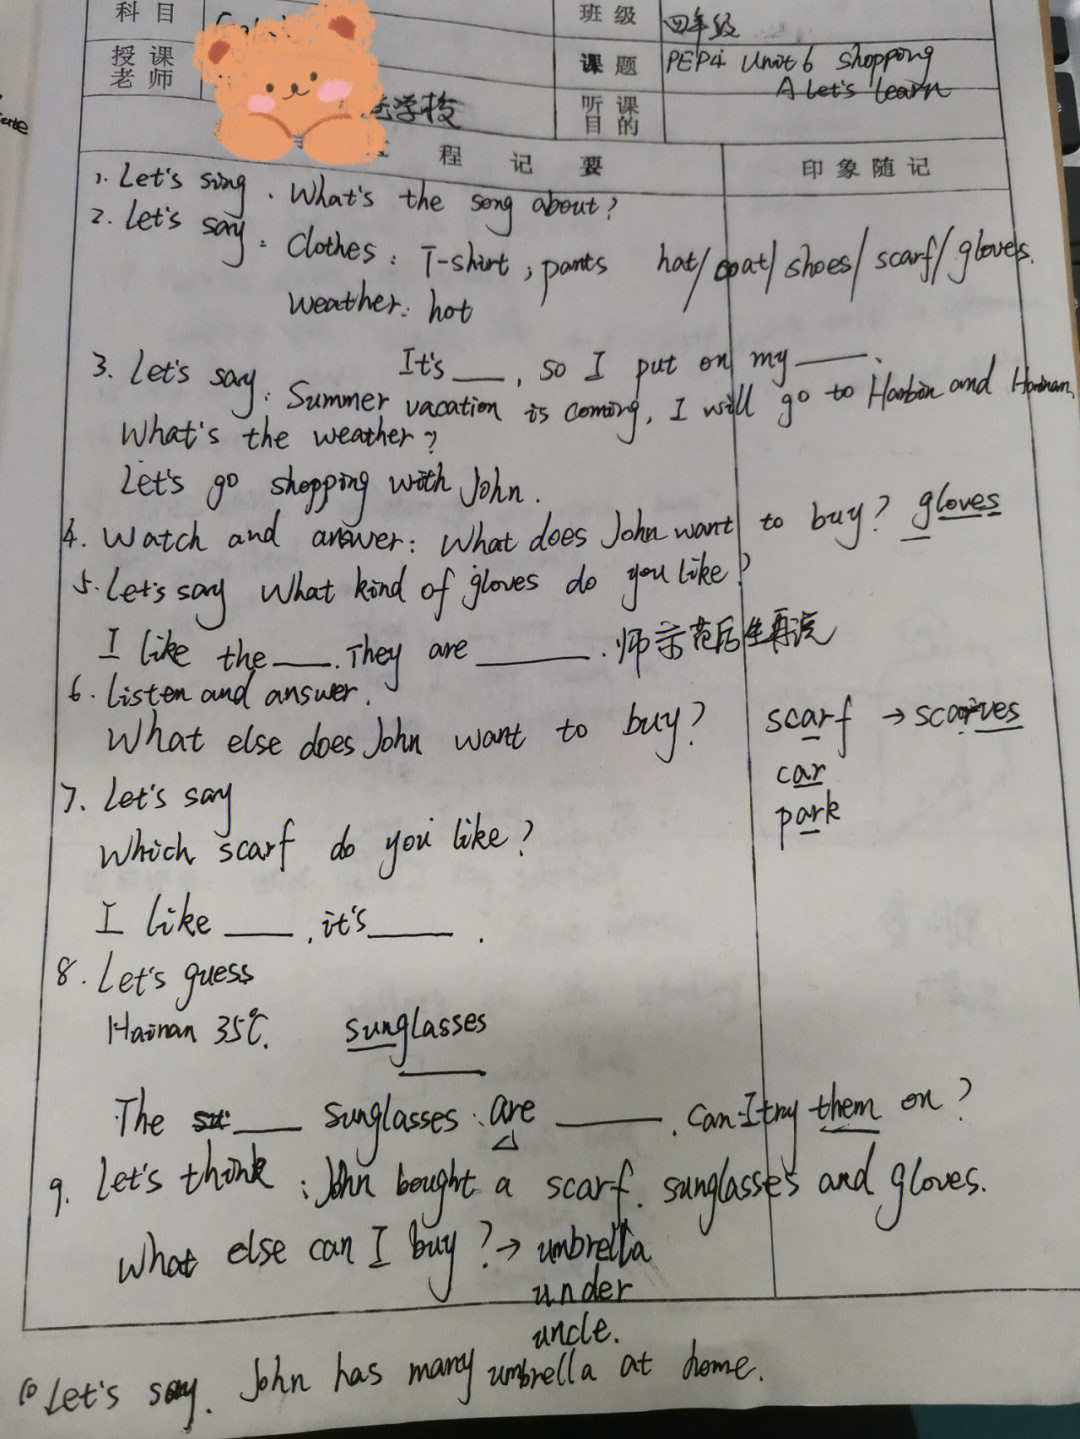 科目
班级 四年级
授课老师
课题 PEP4 Unit 6 Shopping
A Let's learn
学校
听课目的
程记要 印象随记
1. Let's sing. What's the song about?
2. Let's say: Clothes: T-shirt, pants hat/coat/shoes/scarf/gloves.
Weather: hot
It's ___, so I put on my ___.
3. Let's say: Summer vacation is coming, I will go to Harbin and Hainan,
What's the weather?
Let's go shopping with John.
4. Watch and answer: What does John want to buy? gloves
5. Let's say What kind of gloves do you like?
I like the ___. They are ___. 师示范后生再说
6. Listen and answer.
What else does John want to buy? scarf → scarves
car
park
7. Let's say
Which scarf do you like?
I like ___, it's ___.
8. Let's guess
Hainan 35℃. sunglasses
The ___ sunglasses are ___. Can I try them on?
9. Let's think: John bought a scarf. sunglasses and gloves.
What else can I buy? → umbrella
under
uncle.
10 Let's say. John has many umbrella at home.